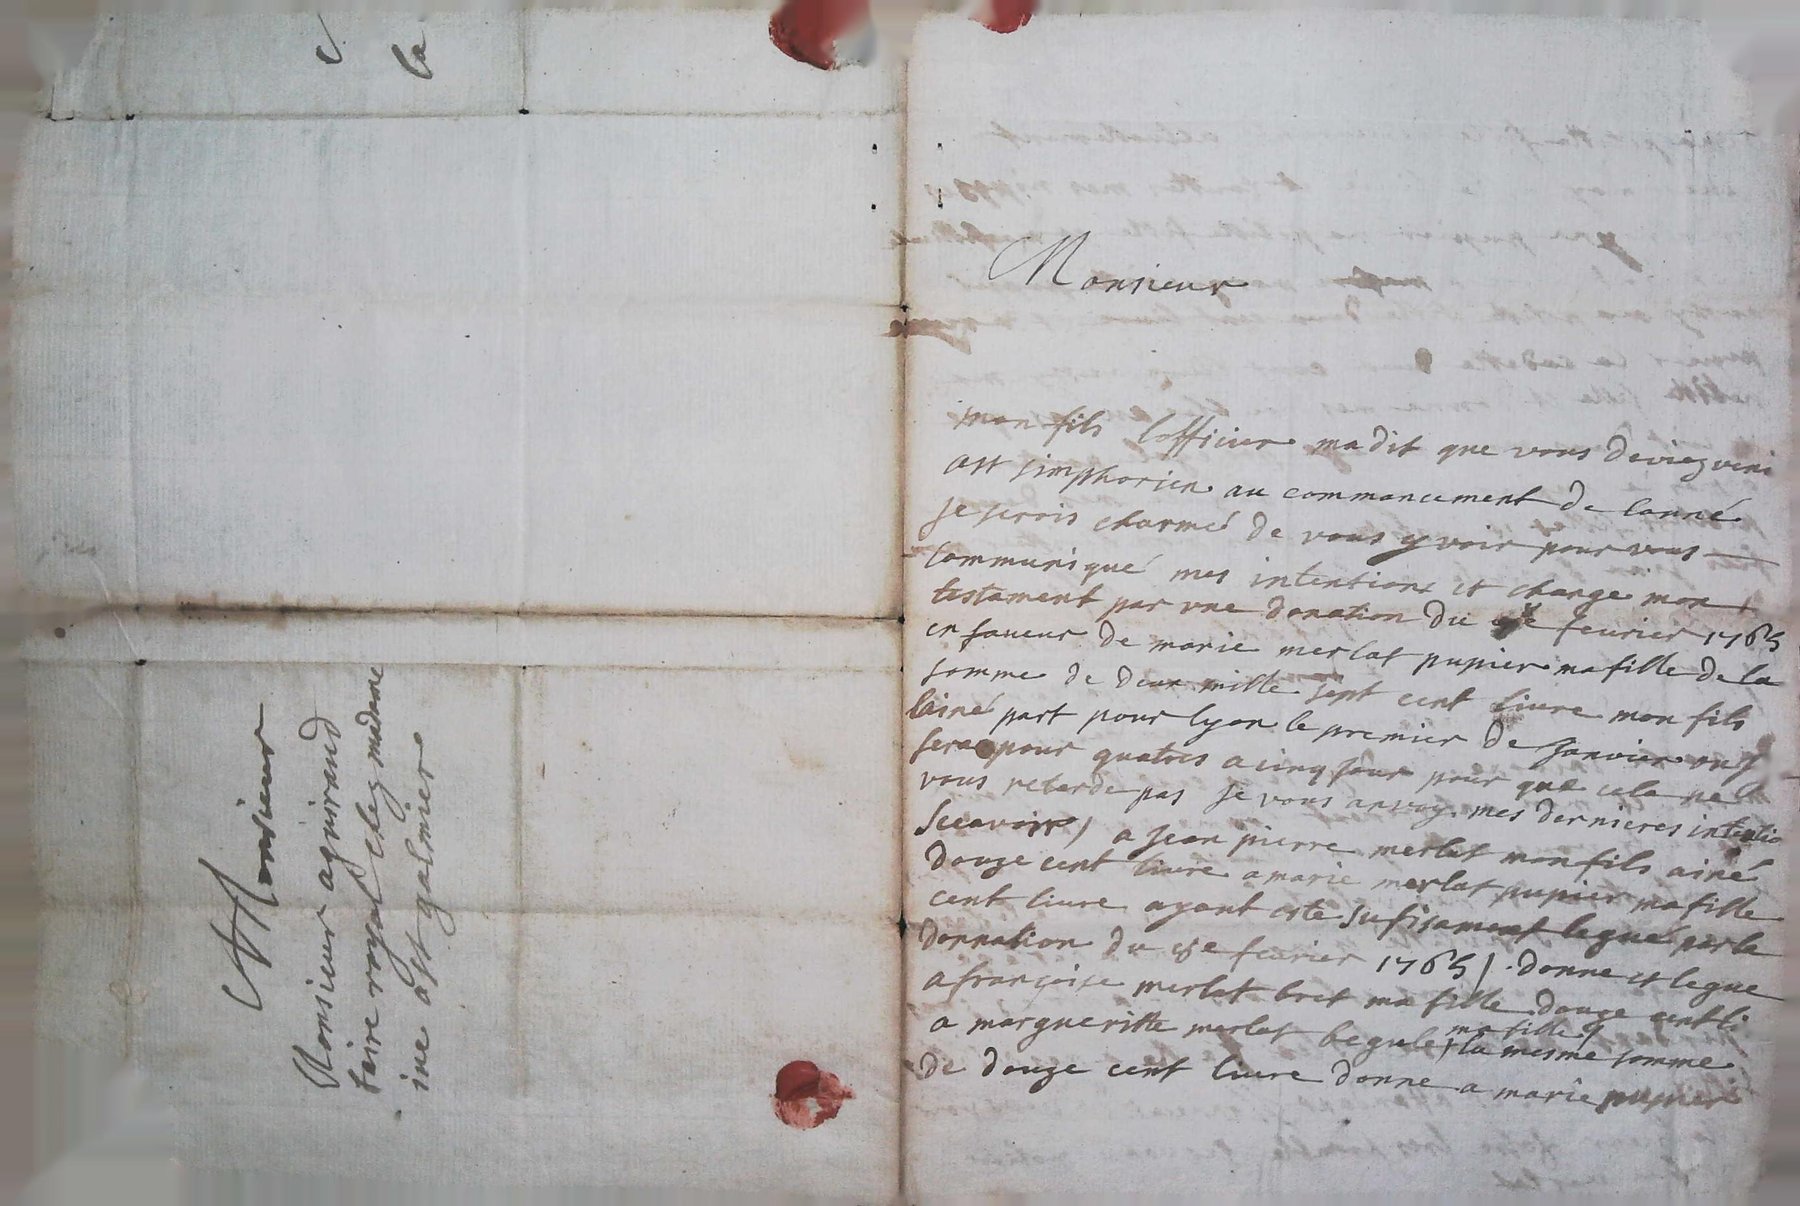 Monsieur
mon fils lofficier ma dit que vous deviez veni
ast simphorien au commancement de lanné
je serois charmé de vous y voir pour vous
communiqué mes intentions et change mon
testament par vne donation du fevrier 1765
en faveur de marie merlat pupier ma fille de la
somme de deux mille sept cent livre mon fils
lainé part pour lyon le premier de janvier
sera pour quatres a cinq jour pour que cela ne
vous retarde pas je vous anvoy mes dernieres intentio
sccavoir) a jean pierre merlat mon fils ainé
douze cent livre a marie merlat pupier ma fille
cent livre ayant esté sufisament legué par la
donnation du fevrier 1765 /. donne et legue
a françoise merlat bret ma fille douze cent li
a margueritte merlat begule ma fille la mesme somme
de douze cent livre donne a marie pupier
Monsieur
Monsieur aguiraud
taire royal chez madame
ine ast galmier
la